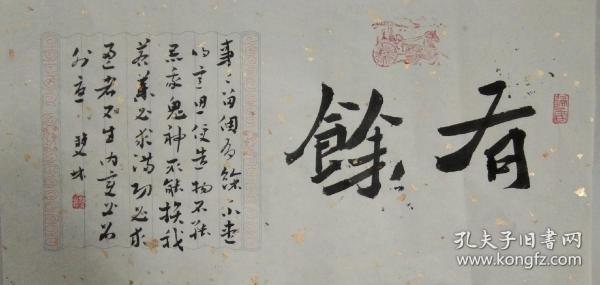 有餘
事〻留個有餘不盡
的意思便造物不能
忌我鬼神不能損我
若業必求滿功必求
盈者不生內變必召
外憂
孔夫子旧书网
www.kongfz.com